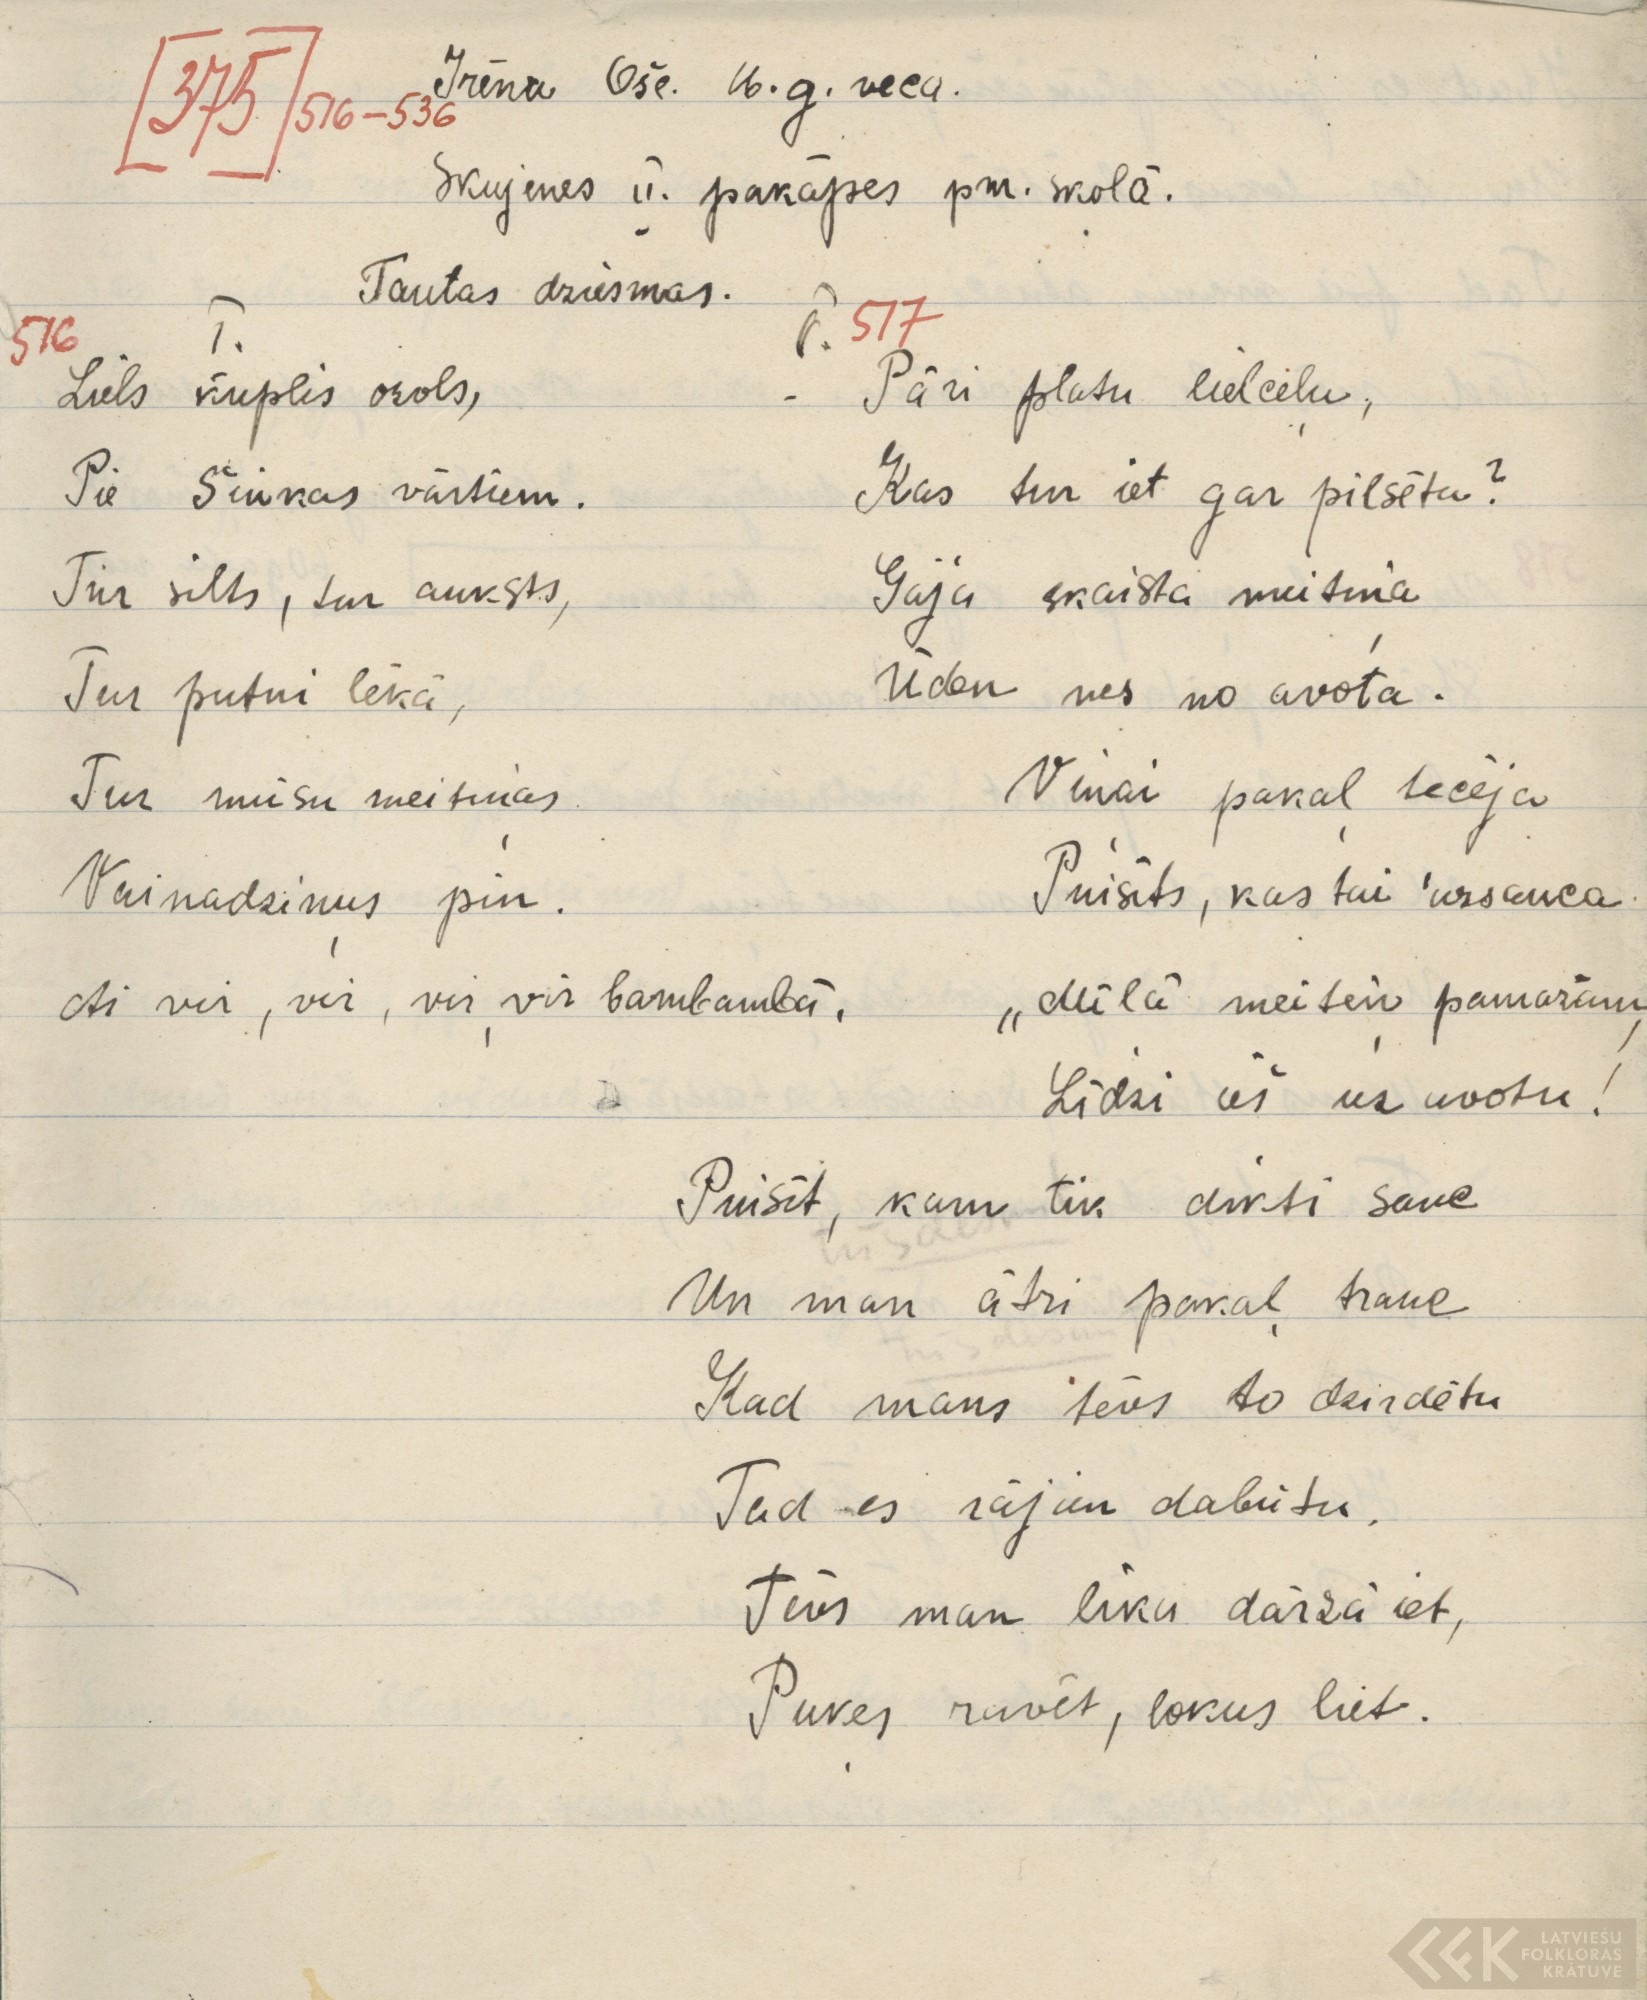 [375] 516-536
Irēna Oše. 16. g. veca.
Skujenes II. pakāpes pm. skolā.
Tautas dziesmas.
516
I.
Liels kuplis ozols,
Pie Šinkas vārtiem.
Tur silts, tur auksts,
Tur putni lēkā,
Tur mūsu meitiņas
Vainadziņus pin.
Ai vir, vir, vir, vir bambambā.
517
Pāri platu lielceļu,
Kas tur iet gar pilsētu?
Gāja skaista meitiņa
Ūden nes no avota.
Viņai pakaļ tecēja
Puisīts, kas tai uzsauca.
„Mīļā meiteņ pamazām,
Līdzi iēs uz avotu!
Puisīt, kam tik dikti sauc
Un man ātri pakaļ trauc
Kad mans tēvs to dzirdētu
Tad es rājien dabūtu.
Tēvs man lika dārzā iet,
Puķes ravēt, lokus liet.
LATVIEŠU
FOLKLORAS
KRĀTUVE